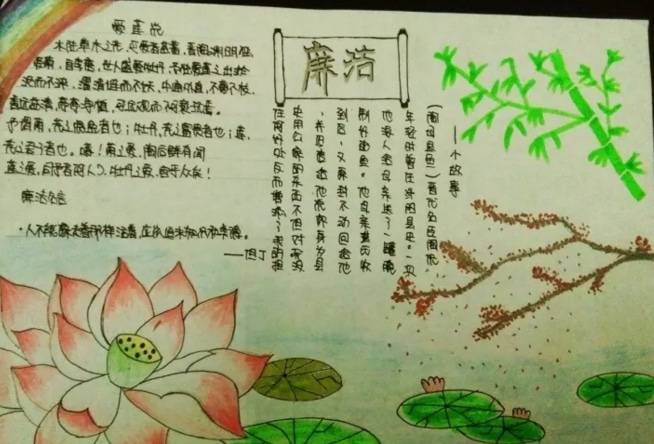 爱莲说
水陆草木之花,可爱者甚蕃,晋陶渊明独
爱菊,自李唐,世人盛爱牡丹,予独爱莲之出淤
泥而不染,濯清涟而不妖,中通外直,不蔓不枝,
香远益清,亭亭净植,可远观而不可亵玩焉。
予谓菊,花之隐逸者也;牡丹,花之富贵者也;莲,
花之君子者也。噫!菊之爱,陶后鲜有闻
莲之爱,同予者何人?牡丹之爱,宜乎众矣!
廉洁名言
·人不能像走兽那样活着,应该追求知识和美德。
——但丁
廉洁
——小故事
(陶母退鱼)晋代名臣陶侃
年轻时曾任浔阳县吏。一次
他派人给母亲送了一罐腌
制好的鱼。他母亲湛氏收
到后,又原封不动回送给他
,并写信给他说你身为县
吏用公家的东西不但对我没
任何好处反而增添了我的担